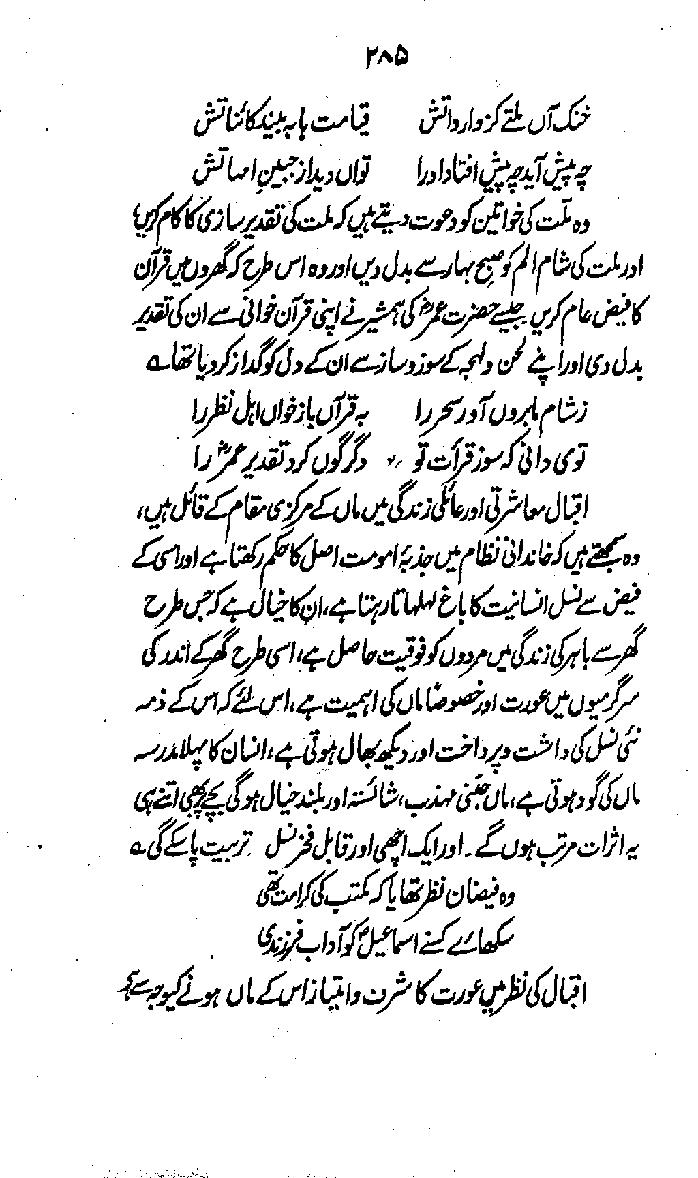 ۲۸۵
خنک آں ملتے کز وارداتش قیامت ہا بہ بیند کائناتش
چہ پیش آید چہ پیش افتاد اورا تواں دید از جبینِ امہاتش
وہ ملّت کی خواتین کو دعوت دیتے ہیں کہ ملت کی تقدیر سازی کا کام کریں
اور ملت کی شام الم کو صبح بہار سے بدل دیں اور وہ اس طرح کہ گھروں میں قرآن
کا فیض عام کریں جیسے حضرت عمرؓ کی ہمشیر نے اپنی قرآن خوانی سے ان کی تقدیر
بدل دی اور اپنے لحن و لہجہ کے سوز و ساز سے ان کے دل کو گداز کر دیا تھا ے
ز شام ما بروں آور سحر را بہ قرآں باز خواں اہل نظر را
تو می دانی کہ سوز قرأت تو دگرگوں کرد تقدیر عمرؓ را
اقبال معاشرتی اور عائلی زندگی میں ماں کے مرکزی مقام کے قائل ہیں،
وہ سمجھتے ہیں کہ خاندانی نظام میں جذبۂ امومت اصل کا حکم رکھتا ہے اور اسی کے
فیض سے نسل انسانیت کا باغ لہلہاتا رہتا ہے، ان کا خیال ہے کہ جس طرح
گھر سے باہر کی زندگی میں مردوں کو فوقیت حاصل ہے، اسی طرح گھر کے اندر کی
سرگرمیوں میں عورت اور خصوصاً ماں کی اہمیت ہے، اس لئے کہ اس کے ذمہ
نئی نسل کی داشت و پرداخت اور دیکھ بھال ہوتی ہے، انسان کا پہلا مدرسہ
ماں کی گود ہوتی ہے، ماں جتنی مہذب، شائستہ اور بلند خیال ہوگی بچے پر بھی اتنے ہی
یہ اثرات مرتب ہوں گے۔ اور ایک اچھی اور قابل فخر نسل تربیت پا سکے گی ے
وہ فیضان نظر تھا یا کہ مکتب کی کرامت تھی
سکھائے کسنے اسماعیلؑ کو آداب فرزندی
اقبال کی نظر میں عورت کا شرف و امتیاز اس کے ماں ہونے کیوجہ سے ہے